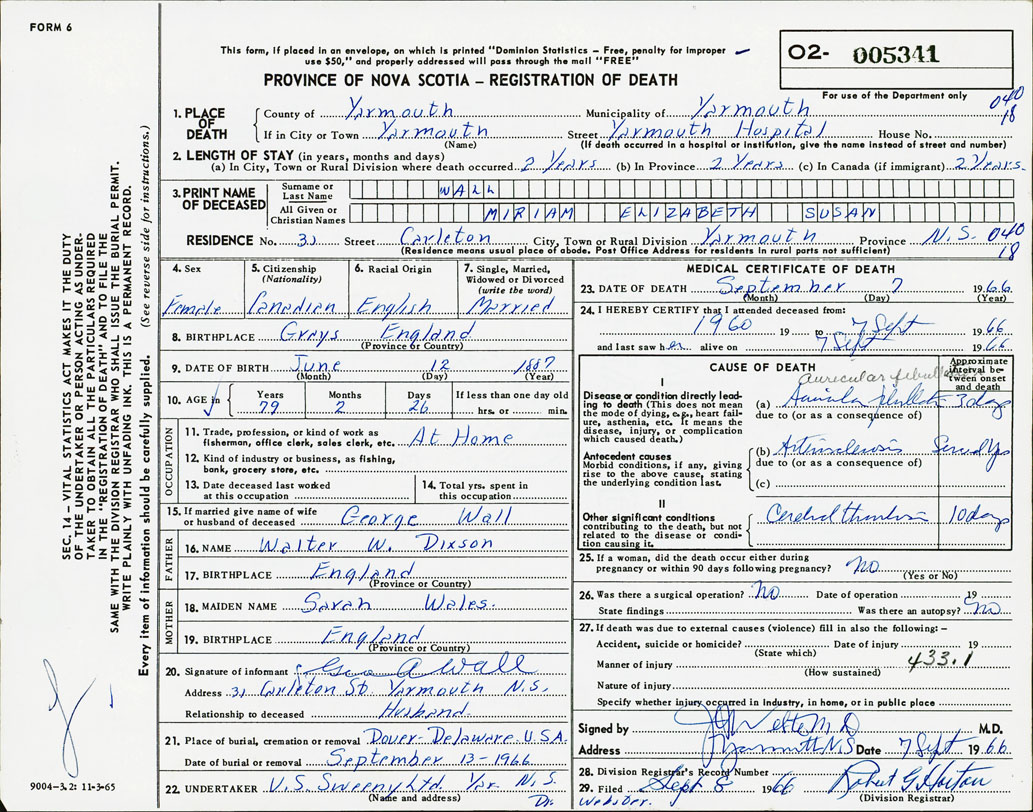 FORM 6
This form, if placed in an envelope, on which is printed "Dominion Statistics – Free, penalty for improper
use $50," and properly addressed will pass through the mail "FREE"
O2- 005341
PROVINCE OF NOVA SCOTIA – REGISTRATION OF DEATH
For use of the Department only
040
18
1. PLACE OF DEATH
County of Yarmouth Municipality of Yarmouth
If in City or Town Yarmouth Street Yarmouth Hospital House No.
(Name) (If death occurred in a hospital or institution, give the name instead of street and number)
2. LENGTH OF STAY (in years, months and days)
(a) In City, Town or Rural Division where death occurred 2 Years (b) In Province 2 Years (c) In Canada (if immigrant) 2 Years
3. PRINT NAME OF DECEASED
Surname or Last Name WALL
All Given or Christian Names MIRIAM ELIZABETH SUSAN
RESIDENCE No. 31 Street Carleton City, Town or Rural Division Yarmouth Province N.S. 040
(Residence means usual place of abode. Post Office Address for residents in rural ports not sufficient) 18
4. Sex
Female
5. Citizenship
(Nationality)
Canadian
6. Racial Origin
English
7. Single, Married,
Widowed or Divorced
(write the word)
Married
8. BIRTHPLACE Grays England
(Province or Country)
9. DATE OF BIRTH June 12 1887
(Month) (Day) (Year)
10. AGE in
Years Months Days If less than one day old
79 2 26 hrs. or min.
OCCUPATION
11. Trade, profession, or kind of work as
fisherman, office clerk, sales clerk, etc. At Home
12. Kind of industry or business, as fishing,
bank, grocery store, etc.
13. Date deceased last worked
at this occupation
14. Total yrs. spent in
this occupation
15. If married give name of wife
or husband of deceased George Wall
FATHER
16. NAME Walter W. Dixson
17. BIRTHPLACE England
(Province or Country)
MOTHER
18. MAIDEN NAME Sarah Wales.
19. BIRTHPLACE England
(Province or Country)
20. Signature of informant Geo A Wall
Address 31 Carleton St. Yarmouth N.S.
Relationship to deceased Husband.
21. Place of burial, cremation or removal Dover-Delaware U.S.A.
Date of burial or removal September 13-1966
22. UNDERTAKER V.S. Sweeny Ltd. Yar. N.S.
(Name and address)
MEDICAL CERTIFICATE OF DEATH
23. DATE OF DEATH September 7 1966
(Month) (Day) (Year)
24. I HEREBY CERTIFY that I attended deceased from:
1960 19 to 7 Sept 1966
and last saw her alive on 7 Sept 1966
CAUSE OF DEATH
Approximate
interval be-
tween onset
and death
I
Disease or condition directly lead-
ing to death (This does not mean
the mode of dying, e.g., heart fail-
ure, asthenia, etc. It means the
disease, injury, or complication
which caused death.)
auricular
(a) 3 days
due to (or as a consequence of)
Antecedent causes
Morbid conditions, if any, giving
rise to the above cause, stating
the underlying condition last.
(b) Arteriosclerosis
due to (or as a consequence of)
(c)
II
Other significant conditions
contributing to the death, but not
related to the disease or condi-
tion causing it.
Cerebral thrombosis 10 days
25. If a woman, did the death occur either during
pregnancy or within 90 days following pregnancy? No
(Yes or No)
26. Was there a surgical operation? No Date of operation 19
State findings Was there an autopsy? No
27. If death was due to external causes (violence) fill in also the following: –
Accident, suicide or homicide? Date of injury 19
(State which)
Manner of injury 433.1
(How sustained)
Nature of injury
Specify whether injury occurred in Industry, in home, or in public place
Signed by M.D. M.D.
Address Yarmouth N.S Date 7 Sept 1966
28. Division Registrar's Record Number
29. Filed Sept 8 1966 Robert G. Horton
(Division Registrar)
Dr.
Webster.
SEC. 14 – VITAL STATISTICS ACT MAKES IT THE DUTY
OF THE UNDERTAKER OR PERSON ACTING AS UNDER-
TAKER TO OBTAIN ALL THE PARTICULARS REQUIRED
IN THE "REGISTRATION OF DEATH" AND TO FILE THE
SAME WITH THE DIVISION REGISTRAR WHO SHALL ISSUE THE BURIAL PERMIT.
WRITE PLAINLY WITH UNFADING INK. THIS IS A PERMANENT RECORD.
Every item of information should be carefully supplied. (See reverse side for instructions.)
9004-3.2: 11-3-65